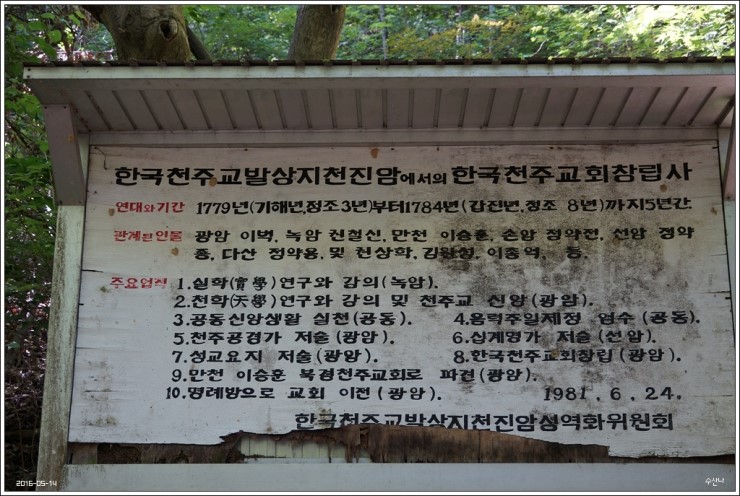 한국천주교발상지천진암에서의 한국천주교회창립사
연대와기간 1779년(기해년,정조3년)부터1784년(갑진년,정조 8년)까지5년간
관계된인물 광암 이벽, 녹암 권철신, 만천 이승훈, 손암 정약전, 선암 정약
종, 다산 정약용, 및 권상학, 김원성, 이총억, 등.
주요업적 1.실학(實學)연구와 강의(녹암).
2.천학(天學)연구와 강의 및 천주교 신앙(광암).
3.공동신앙생활 실천(공동). 4.음력주일제정 엄수(공동).
5.천주공경가 저술(광암). 6.십계명가 저술(선암).
7.성교요지 저술(광암). 8.한국천주교회창립(광암).
9.만천 이승훈 북경천주교회로 파견(광암).
10.명례방으로 교회 이전(광암). 1981. 6. 24.
한국천주교발상지천진암성역화위원회
2016-05-14